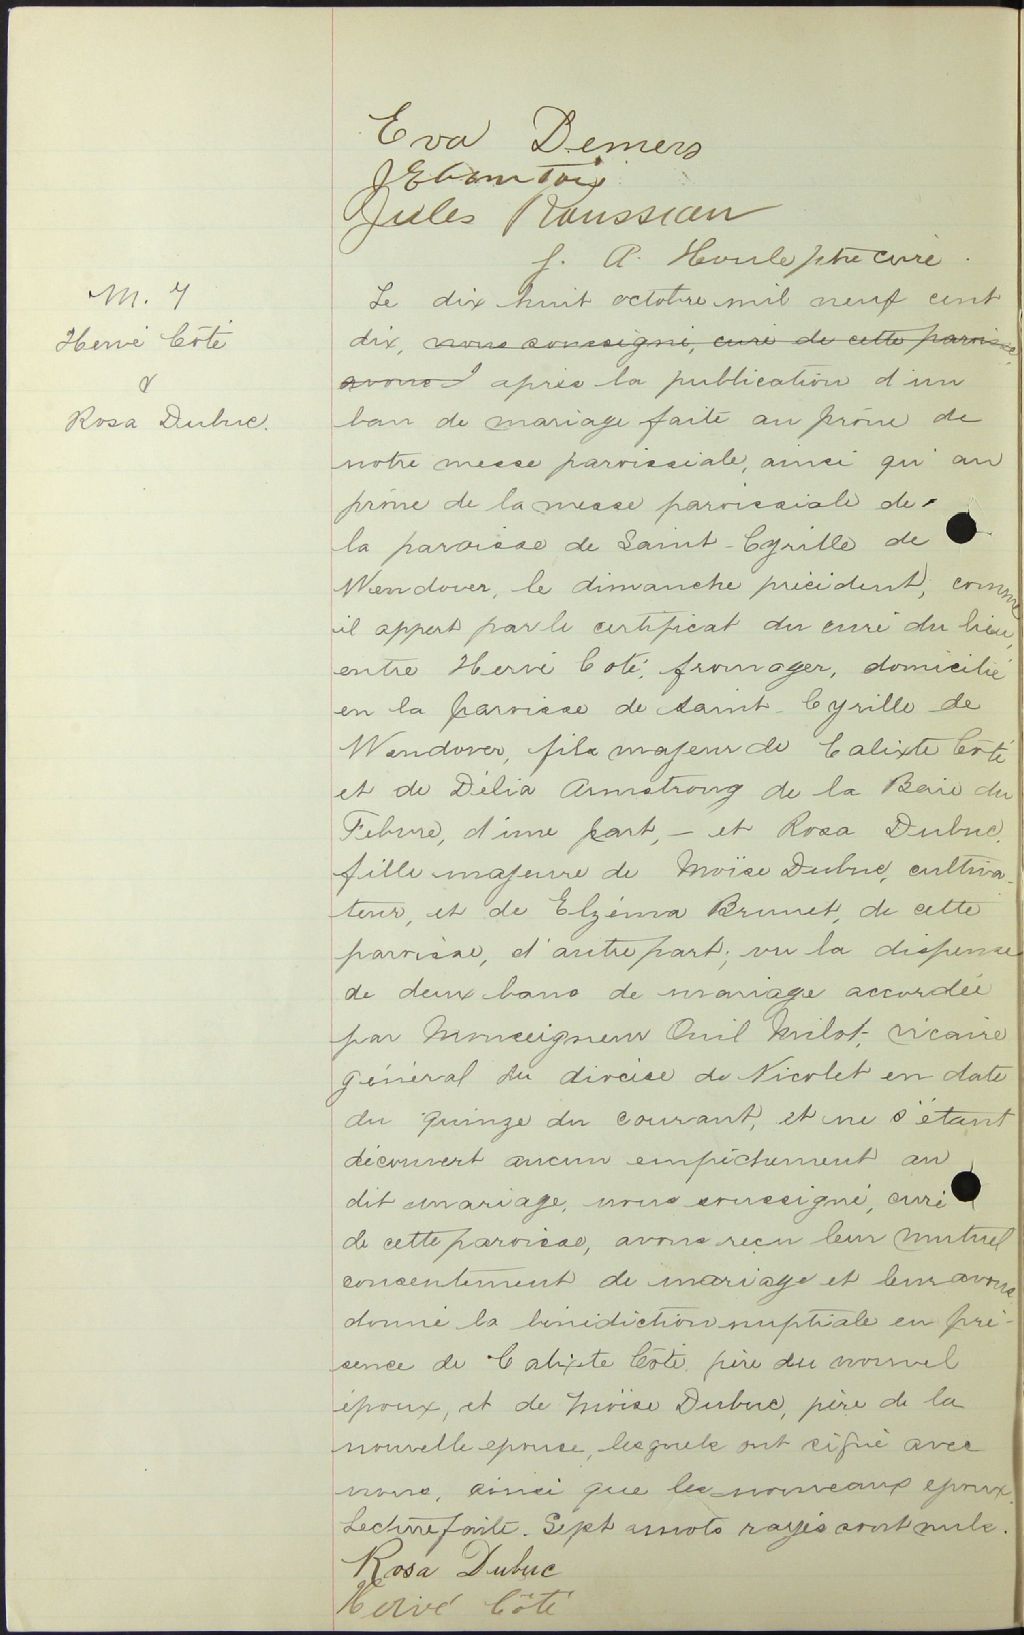 Eva Demers
Jules Rousseau
J. A. Houle ptre curé.
M. 7
Hervé Côté
&
Rosa Dubuc.
Le dix huit octobre mil neuf cent
dix, nous soussigné, curé de cette paroisse,
avons après la publication d'un
ban de mariage faite au prône de
notre messe paroissiale, ainsi qu'au
prône de la messe paroissiale de
la paroisse de Saint-Cyrille de
Wendover, le dimanche précédent, comme
il appert par le certificat du curé du lieu,
entre Hervé Coté, fromager, domicilié
en la paroisse de Saint-Cyrille de
Wendover, fils majeur de Calixte Côté
et de Délia Armstrong de la Baie du
Febvre, d'une part, — et Rosa Dubuc,
fille majeure de Moïse Dubuc, cultiva-
teur, et de Elzéma Brunet, de cette
paroisse, d'autre part; vu la dispense
de deux bans de mariage accordée
par Monseigneur Milot, vicaire
général du diocèse de Nicolet en date
du quinze du courant, et ne s'étant
découvert aucun empêchement au
dit mariage, nous soussigné, curé
de cette paroisse, avons reçu leur mutuel
consentement de mariage et leur avons
donné la bénédiction nuptiale en pré-
sence de Calixte Côté, père du nouvel
époux, et de Moïse Dubuc, père de la
nouvelle epouse, lesquels ont signé avec
nous, ainsi que les nouveaux epoux.
Lecture faite. Sept mots rayés sont nuls.
Rosa Dubuc
Hervé Côté